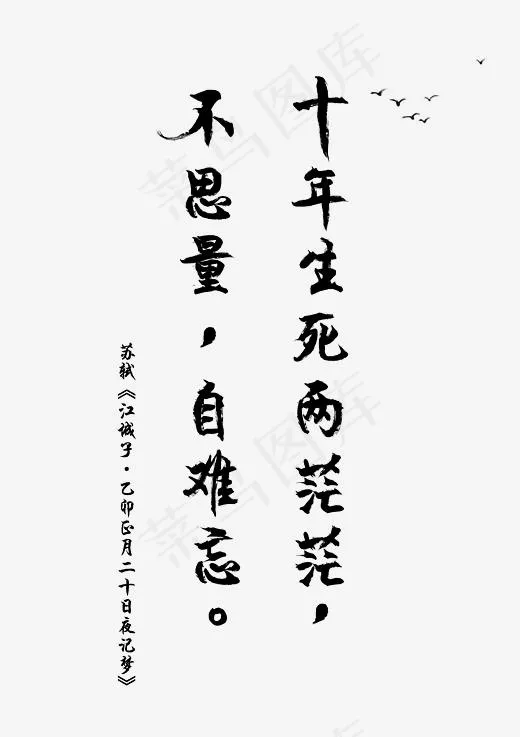 十年生死两茫茫，
不思量，自难忘。
苏轼《江城子·乙卯正月二十日夜记梦》
菜鸟图库
菜鸟图库
菜鸟图库